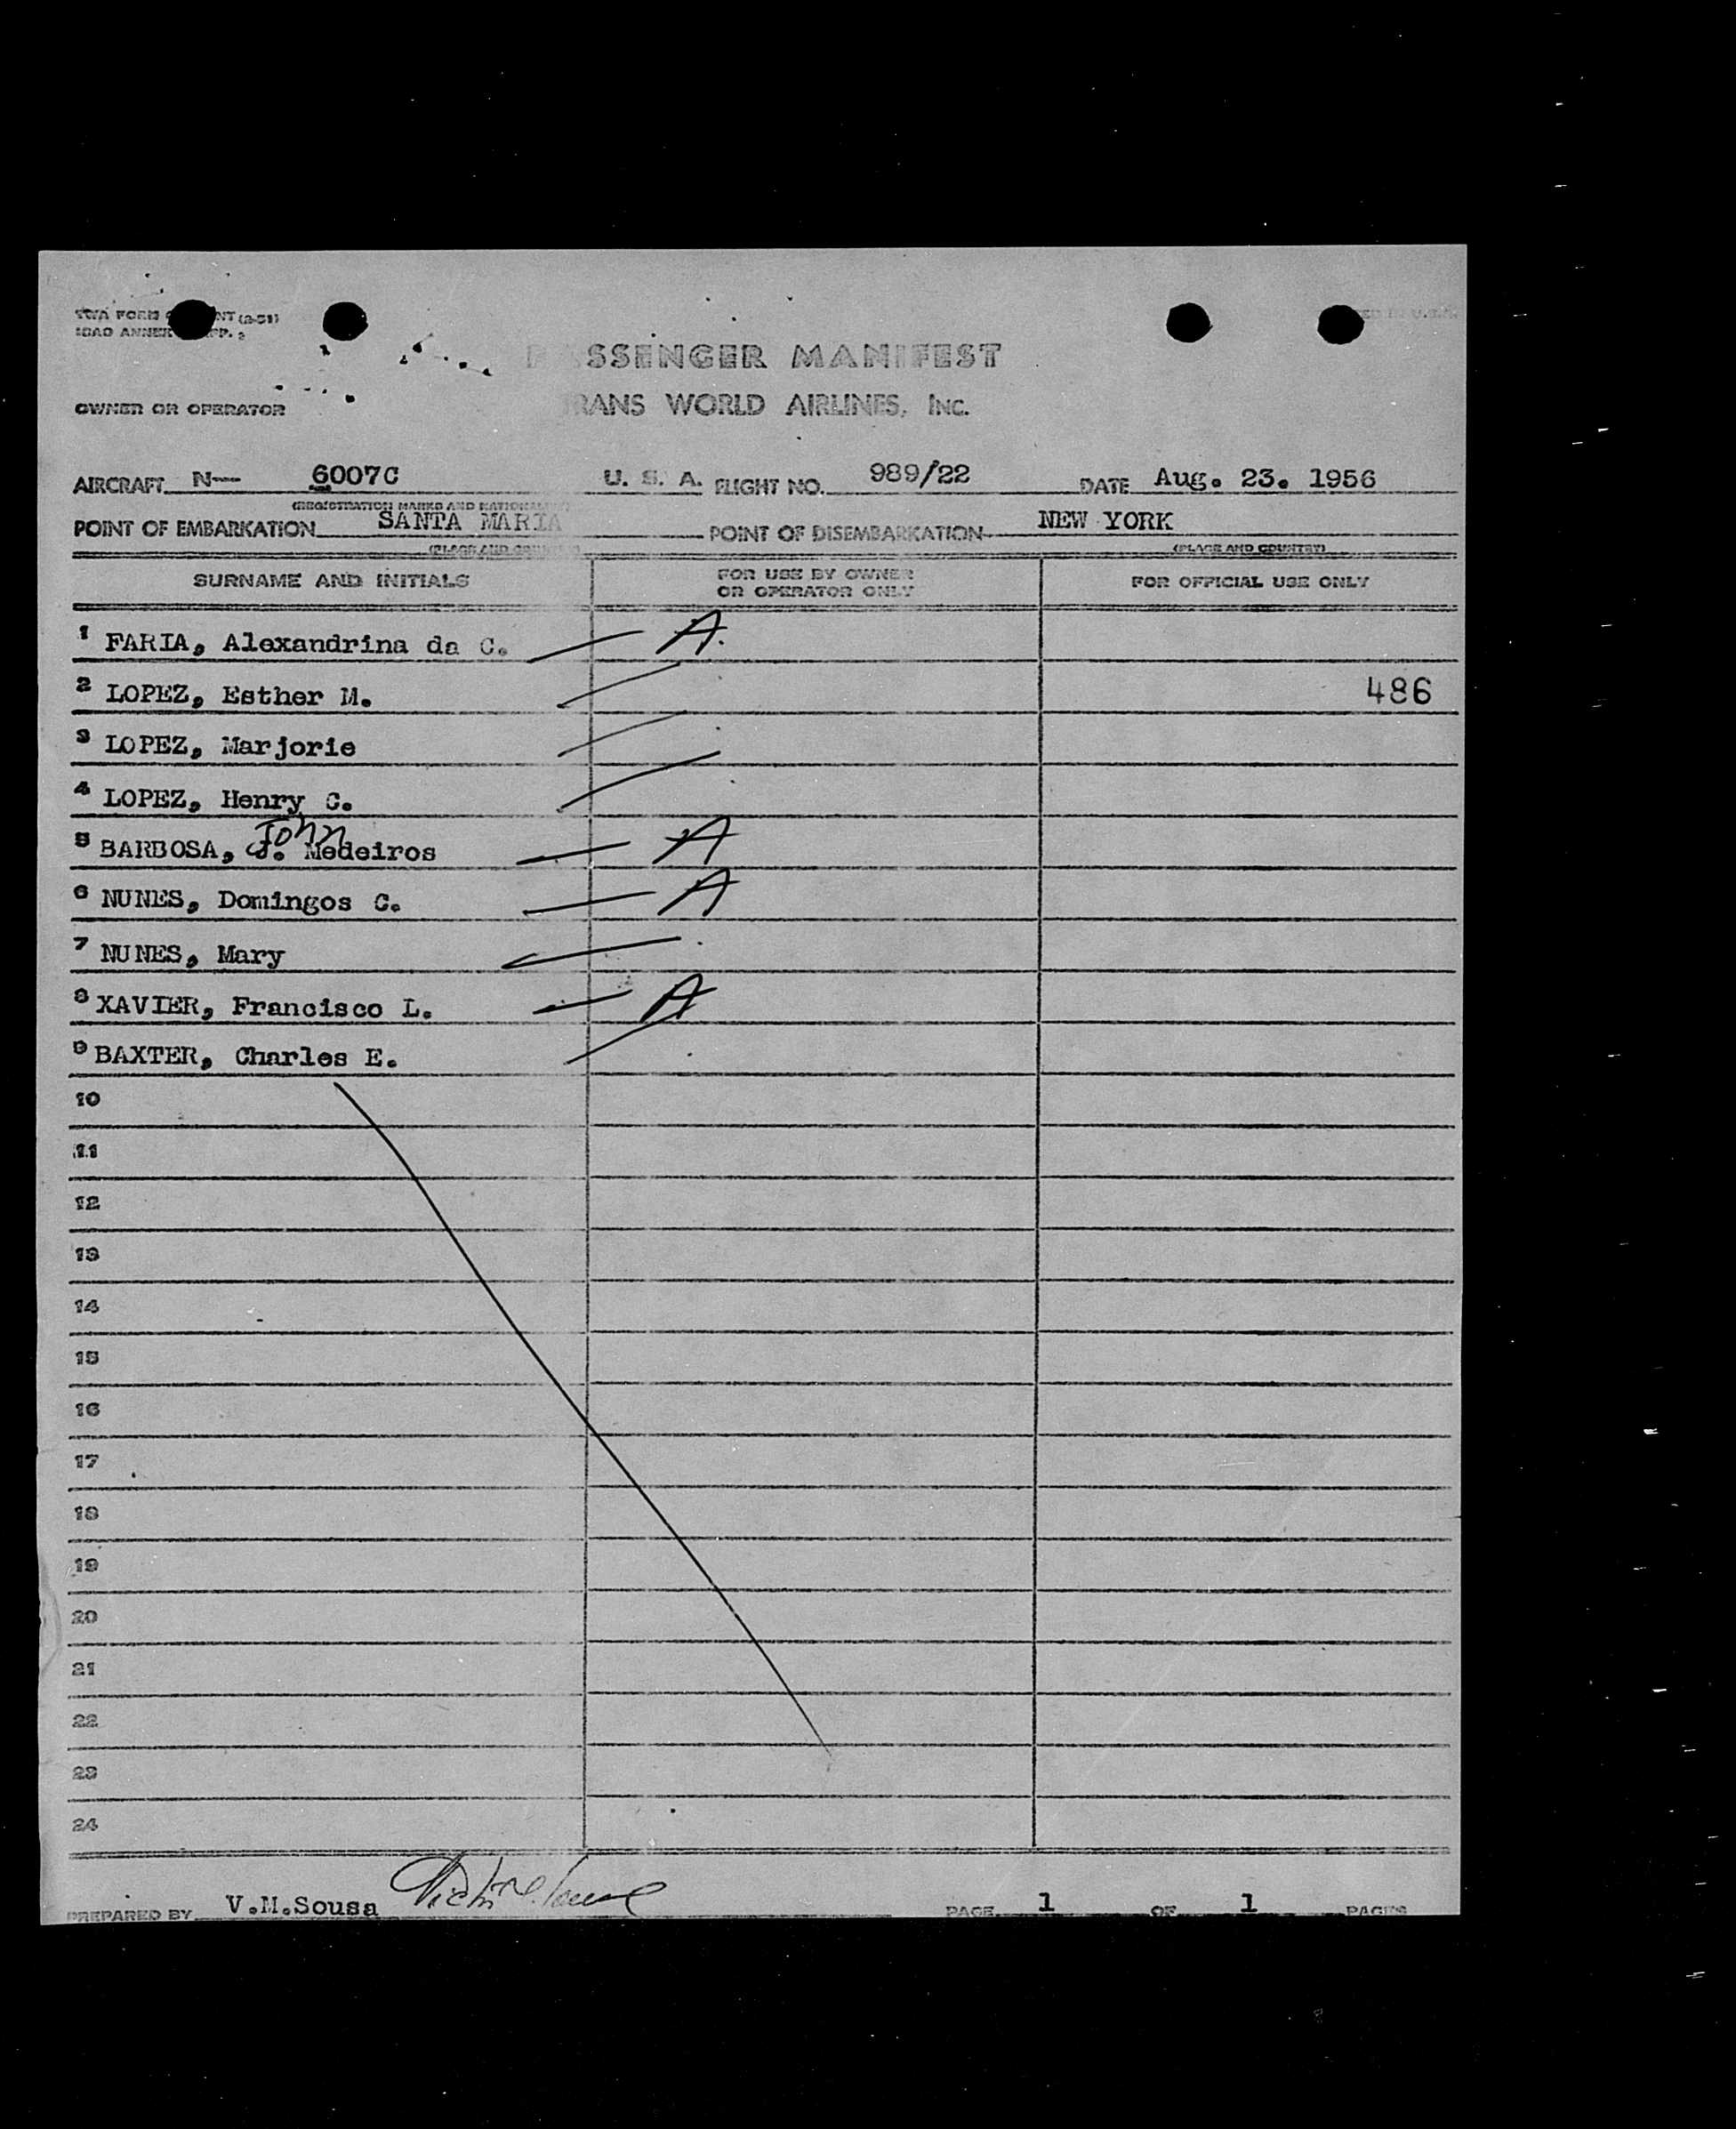 TWA FORM NT (2-51)
ICAO ANNEX PP. 2
PASSENGER MANIFEST
OWNER OR OPERATOR TRANS WORLD AIRLINES, INC.
AIRCRAFT N— 6007C U. S. A. FLIGHT NO. 989/22 DATE Aug. 23. 1956
(REGISTRATION MARKS AND NATIONALITY)
POINT OF EMBARKATION SANTA MARIA POINT OF DISEMBARKATION NEW YORK
(PLACE AND COUNTRY) (PLACE AND COUNTRY)
SURNAME AND INITIALS FOR USE BY OWNER OR OPERATOR ONLY FOR OFFICIAL USE ONLY
1 FARIA, Alexandrina da C. A.
2 LOPEZ, Esther M. 486
3 LOPEZ, Marjorie
4 LOPEZ, Henry C.
John
5 BARBOSA, J. Medeiros A
6 NUNES, Domingos C. A
7 NUNES, Mary
8 XAVIER, Francisco L. A
9 BAXTER, Charles E.
10
11
12
13
14
15
16
17
18
19
20
21
22
23
24
PREPARED BY V.M.Sousa PAGE 1 OF 1 PAGES